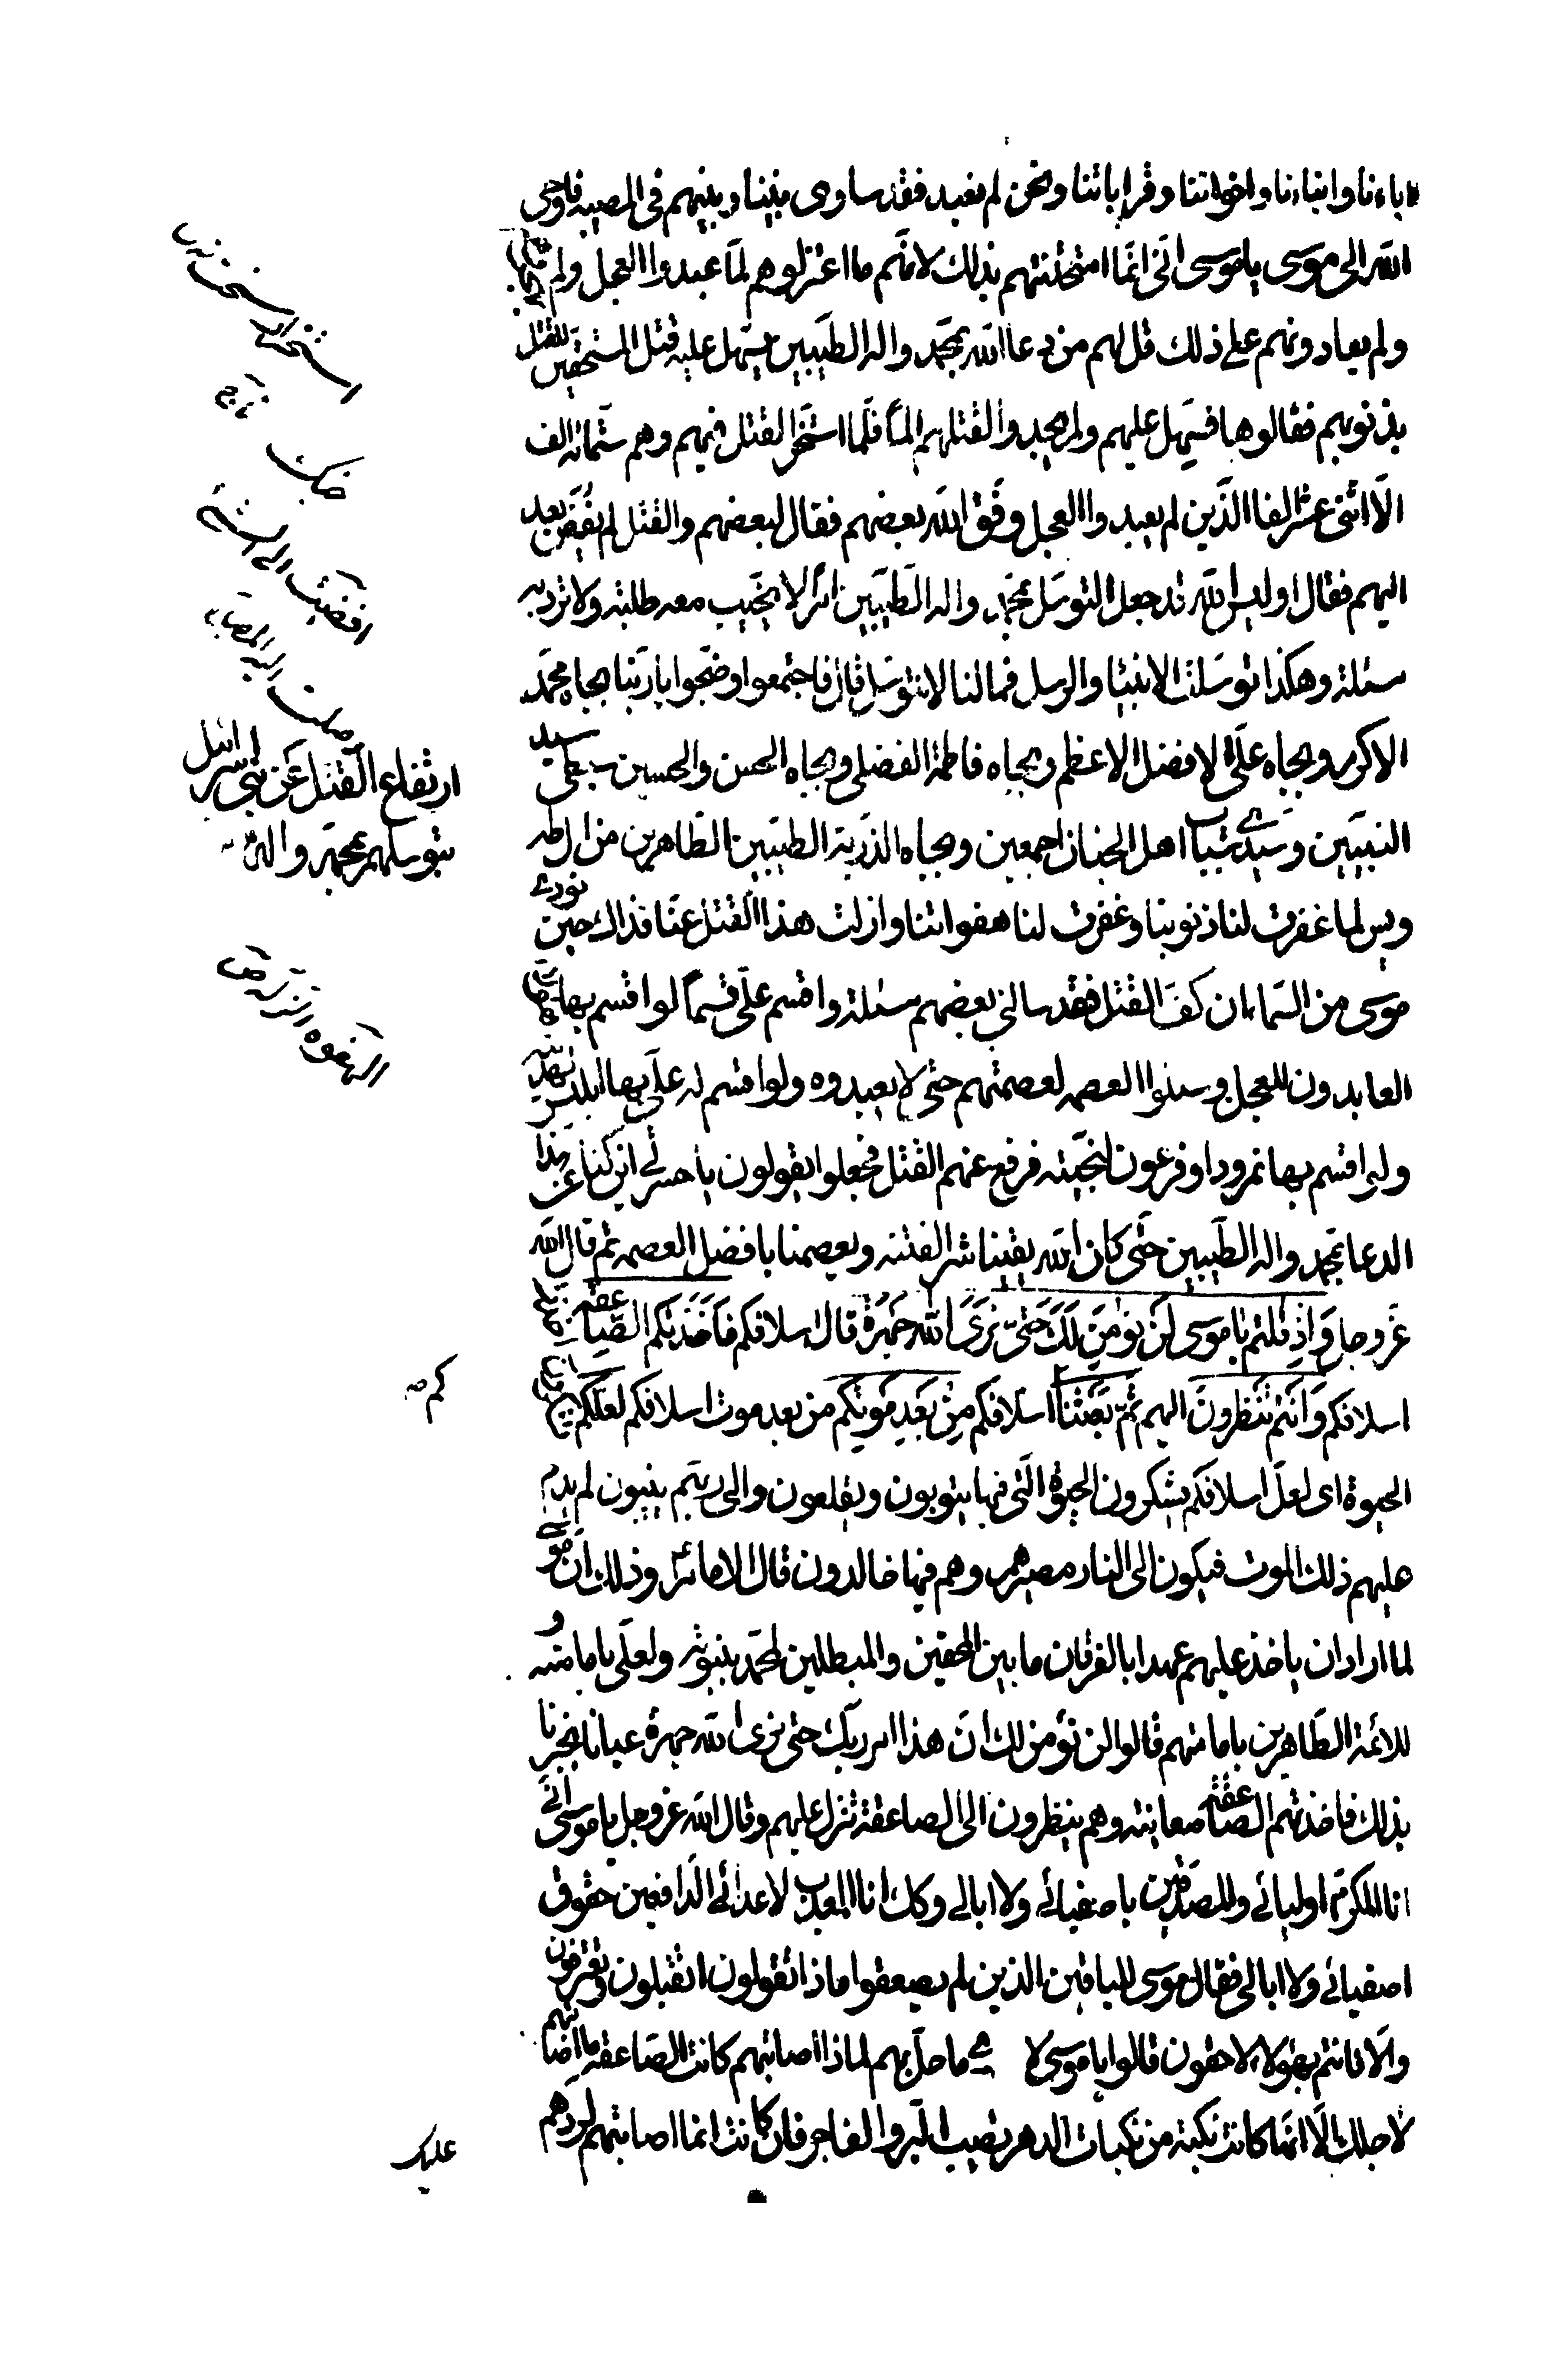 اباءنا وابناءنا واخواتنا وقراباتنا ونحن لم نعبد فقد ساوى بيننا وبينهم فى المصيبه فاوحى
الله الى موسى يا موسى انّى انّما امتحنتهم بذلك لانّهم ما اعتزلوهم لمّا عبدوا العجل ولم
ولم يعادونهم على ذلك قل لهم من دعا الله بمحمّد واله الطّيّبين يسهل عليه قتل المستحقين للقتل
بذنوبهم فقالوها فسهل عليهم ولم يجدوا لقتلهم المًا فلمّا استحرّ القتل فيهم وهم ستمائة الف
الّا اثنى عشر الفا الّذين لم يعبدوا العجل وفّق الله بعضهم فقال لبعضهم والقتل لم يفض بعد
اليهم فقال اوليس الله قد جعل التوسّل بمحمّد واله الطّيّبين امرًا لا يخيب معه طلبته ولا ترد به
مسئلة وهكذا توسّلت الانبيا والرسل فما لنا لا نتوسّل قال فاجتمعوا وضجّوا يا ربّنا بجاه محمّد
الاكرم وبجاه علىّ الافضل الاعظم وبجاه فاطمة الفضلى وبجاه الحسن والحسين سبطى سيد
النبيّين وسيّدى شباب اهل الجنان اجمعين وبجاه الذّريّة الطيّبين الطّاهرين من ال طه
ويس لما غفرت لنا ذنوبنا وغفرت لنا هفواتنا وازلت هذا القتل عنّا فذاك حين نودى
موسى من السّماء ان كفّ القتل فقد سالنى بعضهم مسئلة واقسم علىّ قسمًا لو اقسم بها
العابدون للعجل وسئلوا العصمه لعصمتهم حتى لا يعبدوه ولو اقسم له علىّ بها ابليس لهديته
ولو اقسم بها نمرود او فرعون لنجّيته فرفع عنهم القتل فجعلوا يقولون يا حسرتى اين كنا عن هذا
الدعا بمحمد واله الطّيبين حتّى كان الله يقينا شر الفتنه ويعصمنا بافضل العصمه ثم قال الله
عزّ وجل وَاِذ قلتم يا موسى لَن نؤمِنَ لَكَ حَتّى نَرَى الله جَهرَة قال اسلافكم فَاَخَذَتكم الصّاعقه
اسلافكم وَانتم تَنظرونَ اليهم ثمّ بَعَثنا اسلافكم مِن بَعدِ مَوتِكم من بعد موت اسلافكم لعلّكم
الحيوة اى لعلّ اسلافكم يشكرون الحيوة الّتى فيها يتوبون ويقلعون والى ربّهم ينيبون لم يدم
عليهم ذلك الموت فيكون الى النار مصيرهم وهم فيها خالدون قال الامام وذلك انّ موسى
لما اراد ان ياخذ عليهم عهدا بالفرقان ما بين المحقين والمبطلين لمحمّد بنبوته ولعلّى بامامته و
للائمة الطّاهرين بامامتهم قالوا لن نؤمن لك انّ هذا امر ربّك حتى نرى الله جهرة عيانا يخبرنا
بذلك فاخذتهم الصّاعقة معاينه وهم ينظرون الى الصاعقة تنزل عليهم وقال الله عز وجل يا موسى انّى
انا المكرم اوليائى والمصدّقين باصفيائى ولا ابالى وكك انا المعذب لاعدائى الدّافعين حقوق
اصفيائى ولا ابالى فقال موسى للباقين الذين لم يصعقوا ماذا تقولون اتقبلون وتعترفون
والّا فانتم بهؤلاء لاحقون قالوا يا موسى لا ما حل بهم لماذا اصابتهم كانت الصّاعقه ما اصابتهم
لاجلك الّا انّها كانت نكبة من نكبات الدهر تصيب البرّ والفاجر فان كانت انما اصابتهم لردهم
ارتفاع القتل عن بنى اسرائيل
بتوسلهم بمحمّد واله
كم
عليك